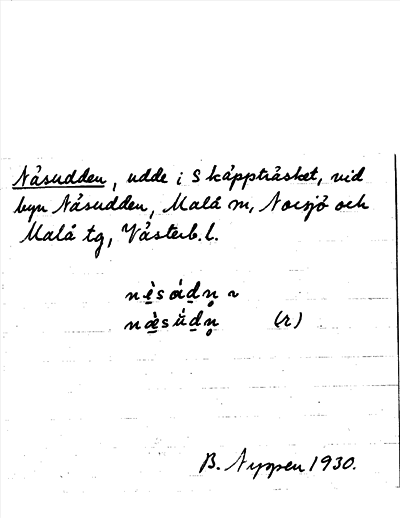 Näsudden, udde i Skäppträsket, vid
byn Näsudden, Malå m, Norsjö och
Malå tg, Västerb.l.
nè̱sáḏn̥ ~
næ̱̀sǘḏn̥ (r)
B. Nyppen 1930.